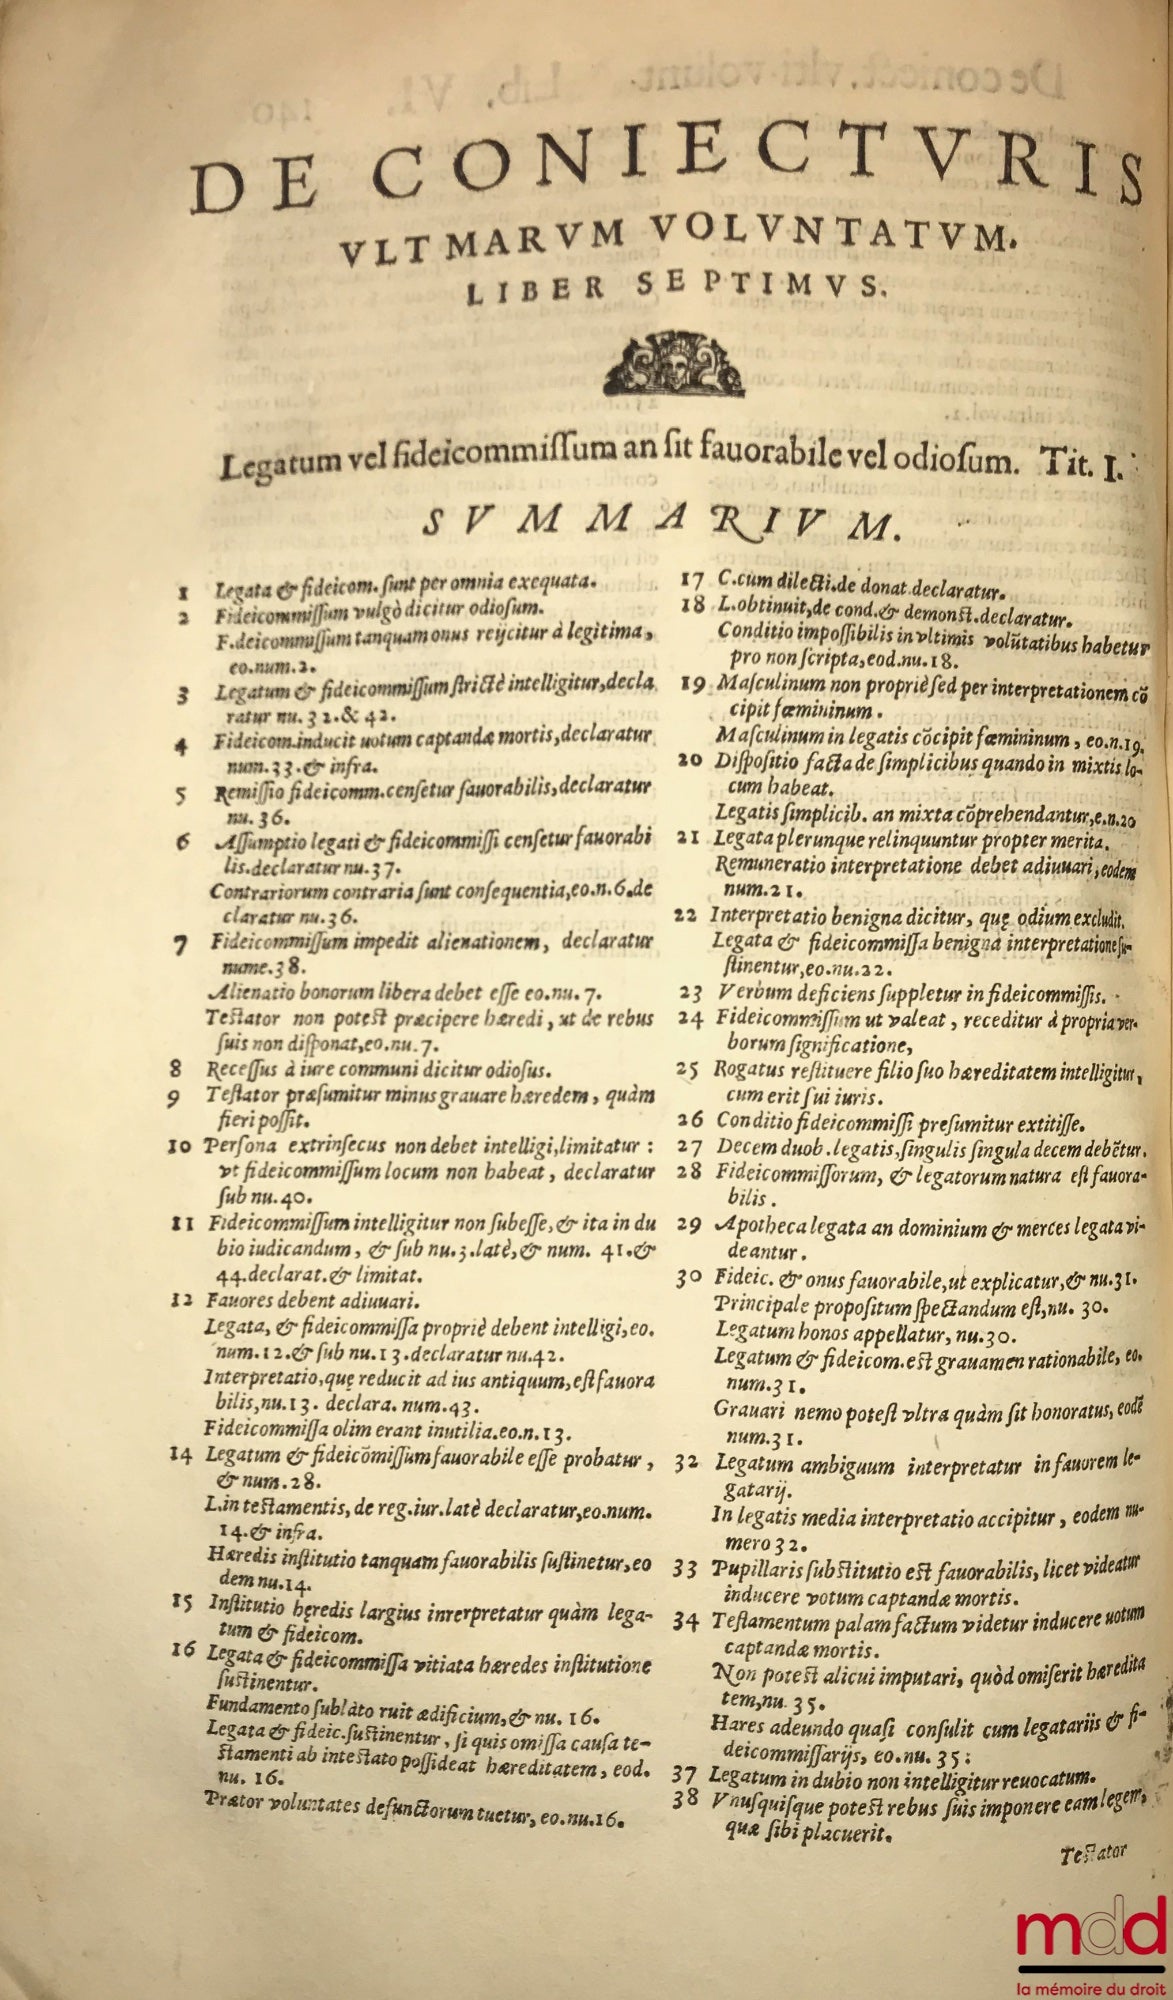 DE CONIECTVRIS
VLTMARVM VOLVNTATVM.
LIBER SEPTIMVS.
Legatum vel fideicommiſſum an ſit fauorabile vel odioſum. Tit. I.
SVMMARIVM.
1 Legata & fideicom. ſunt per omnia exequata.
2 Fideicommiſſum vulgò dicitur odioſum.
F.deicommiſſum tanquam onus reijcitur à legitima,
eo.num.2.
3 Legatum & fideicommiſſum ſtrictè intelligitur, decla
ratur nu. 32.& 42.
4 Fideicom.inducit uotum captandæ mortis, declaratur
num.33.& infra.
5 Remiſſio fideicomm.cenſetur fauorabilis, declaratur
nu. 36.
6 Aſſumptio legati & fideicommiſſi cenſetur fauorabi
lis.declaratur nu.37.
Contrariorum contraria ſunt conſequentia, eo.n.6.de
claratur nu.36.
7 Fideicommiſſum impedit alienationem, declaratur
nume.38.
Alienatio bonorum libera debet eſſe eo.nu. 7.
Teſtator non poteſt præcipere hæredi, ut de rebus
ſuis non diſponat, eo.nu.7.
8 Receſſus à iure communi dicitur odioſus.
9 Teſtator præſumitur minus grauare hæredem, quàm
fieri poſſit.
10 Perſona extrinſecus non debet intelligi, limitatur:
vt fideicommiſſum locum non habeat, declaratur
ſub nu.40.
11 Fideicommiſſum intelligitur non ſubeſſe, & ita in du
bio iudicandum, & ſub nu.3.latè, & num. 41.&
44.declarat.& limitat.
12 Fauores debent adiuuari.
Legata, & fideicommiſſa propriè debent intelligi, eo.
num.12.& ſub nu.13.declaratur nu.42.
Interpretatio, quę reducit ad ius antiquum, eſt fauora
bilis, nu.13. declara. num.43.
Fideicommiſſa olim erant inutilia.eo.n.13.
14 Legatum & fideicōmiſſum fauorabile eſſe probatur,
& num.28.
L.in teſtamentis, de reg.iur.latè declaratur, eo.num.
14.& infra.
Hæredis inſtitutio tanquam fauorabilis ſuſtinetur, eo
dem nu.14.
15 Inſtitutio hęredis largius inrerpretatur quàm lega-
tum & fideicom.
16 Legata & fideicommiſſa vitiata hæredes inſtitutione
ſuſtinentur.
Fundamento ſublàto ruit ædificium, & nu. 16.
Legata & fideic.ſuſtinentur, ſi quis omiſſa cauſa te-
ſtamenti ab inteſtato poſſideat hæreditatem, eod.
nu. 16.
Prætor voluntates defunctorum tuetur, eo.nu.16.
17 C.cum dilecti.de donat.declaratur.
18 L.obtinuit, de cond.& demonſt.declaratur.
Conditio impoſſibilis in vltimis volūtatibus habetur
pro non ſcripta, eod.nu.18.
19 Maſculinum non propriè ſed per interpretationem cō
cipit fœmininum.
Maſculinum in legatis cōcipit fœmininum, eo.n.19.
20 Diſpoſitio facta de ſimplicibus quando in mixtis lo-
cum habeat.
Legatis ſimplicib. an mixta cōprehendantur, e.n.20
21 Legata plerunque relinquuntur propter merita.
Remuneratio interpretatione debet adiuuari, eodem
num.21.
22 Interpretatio benigna dicitur, quę odium excludit.
Legata & fideicommiſſa benigna interpretatione ſu-
ſtinentur, eo.nu.22.
23 Verbum deficiens ſuppletur in fideicommiſſis.
24 Fideicommiſſum ut valeat, receditur à propria ver-
borum ſignificatione,
25 Rogatus reſtituere filio ſuo hæreditatem intelligitur,
cum erit ſui iuris.
26 Conditio fideicommiſſi preſumitur extitiſſe.
27 Decem duob.legatis, ſingulis ſingula decem debētur.
28 Fideicommiſſorum, & legatorum natura eſt fauora-
bilis.
29 Apotheca legata an dominium & merces legata vi-
deantur.
30 Fideic. & onus fauorabile, ut explicatur, & nu.31.
Principale propoſitum ſpectandum eſt, nu. 30.
Legatum honos appellatur, nu.30.
Legatum & fideicom.eſt grauamen rationabile, eo.
num.31.
Grauari nemo poteſt vltra quàm ſit honoratus, eodē
num.31.
32 Legatum ambiguum interpretatur in fauorem le-
gatarij.
In legatis media interpretatio accipitur, eodem nu-
mero 32.
33 Pupillaris ſubſtitutio eſt fauorabilis, licet videatur
inducere votum captandæ mortis.
34 Teſtamentum palam factum videtur inducere uotum
captandæ mortis.
Non poteſt alicui imputari, quòd omiſerit hæredita
tem, nu. 35.
Hares adeundo quaſi conſulit cum legatariis & fi-
deicommiſſarijs, eo.nu. 35:
37 Legatum in dubio non intelligitur reuocatum.
38 Vnuſquiſque poteſt rebus ſuis imponere eam legem,
quæ ſibi placuerit.
Teſtator
mdd
la mémoire du droit